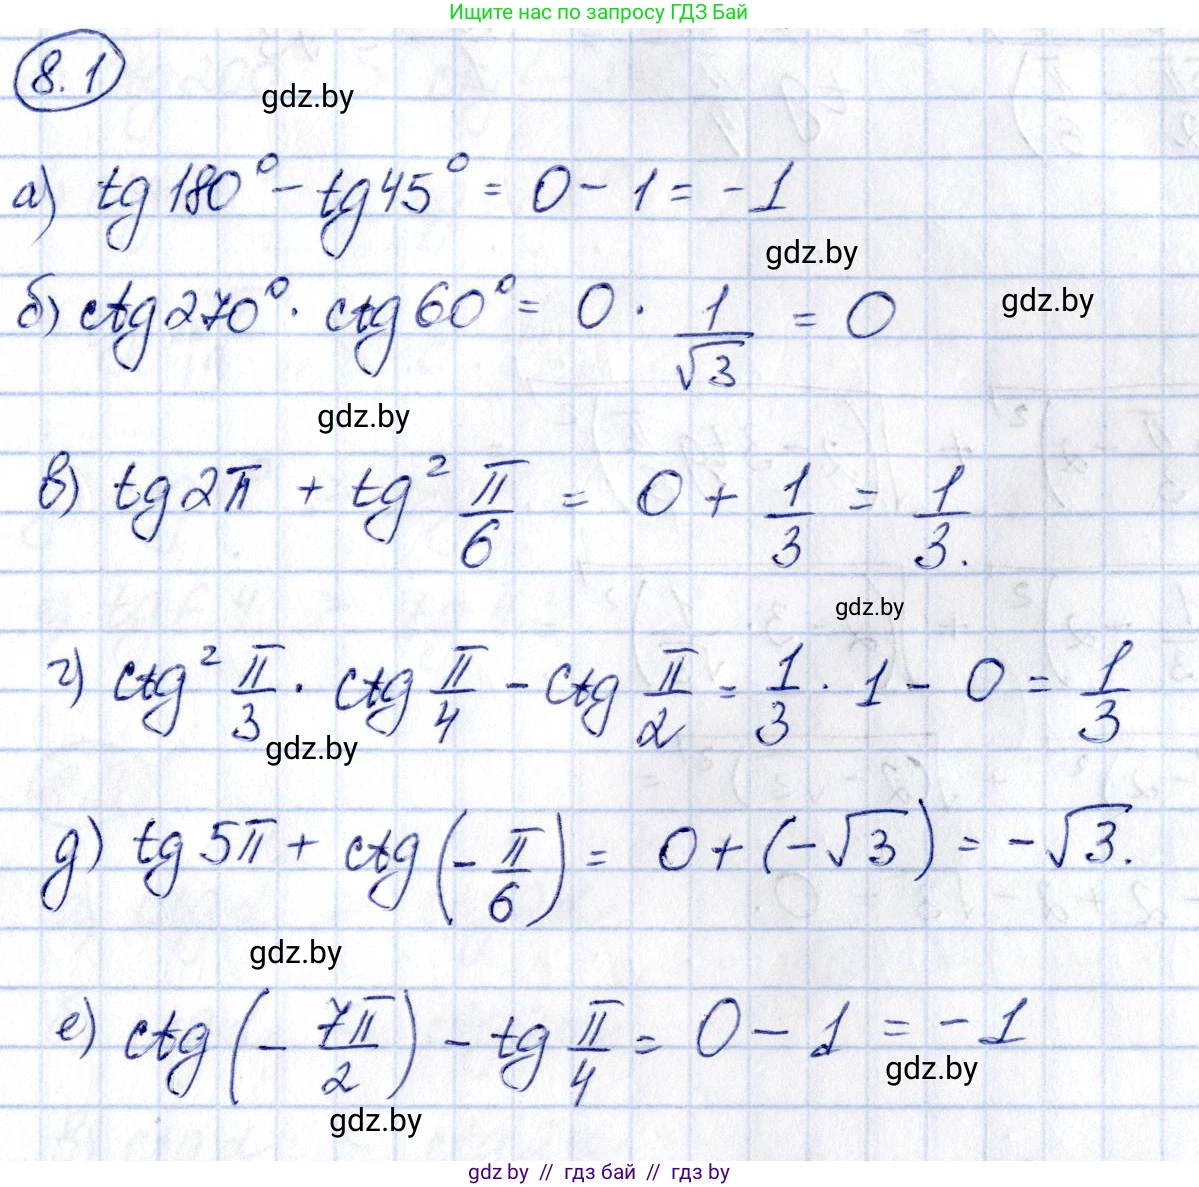 Ищите нас по запросу ГДЗ Бай
8.1
gdz.by
а) tg 180° − tg 45° = 0 − 1 = −1
gdz.by
б) ctg 270° · ctg 60° = 0 · 1/√3 = 0
gdz.by
gdz.by
в) tg 2π + tg² π/6 = 0 + 1/3 = 1/3.
gdz.by
г) ctg² π/3 · ctg π/4 − ctg π/2 = 1/3 · 1 − 0 = 1/3
gdz.by
д) tg 5π + ctg (−π/6) = 0 + (−√3) = −√3.
gdz.by
е) ctg (− 7π/2) − tg π/4 = 0 − 1 = −1
gdz.by
gdz.by
gdz by // гдз бай // гдз by